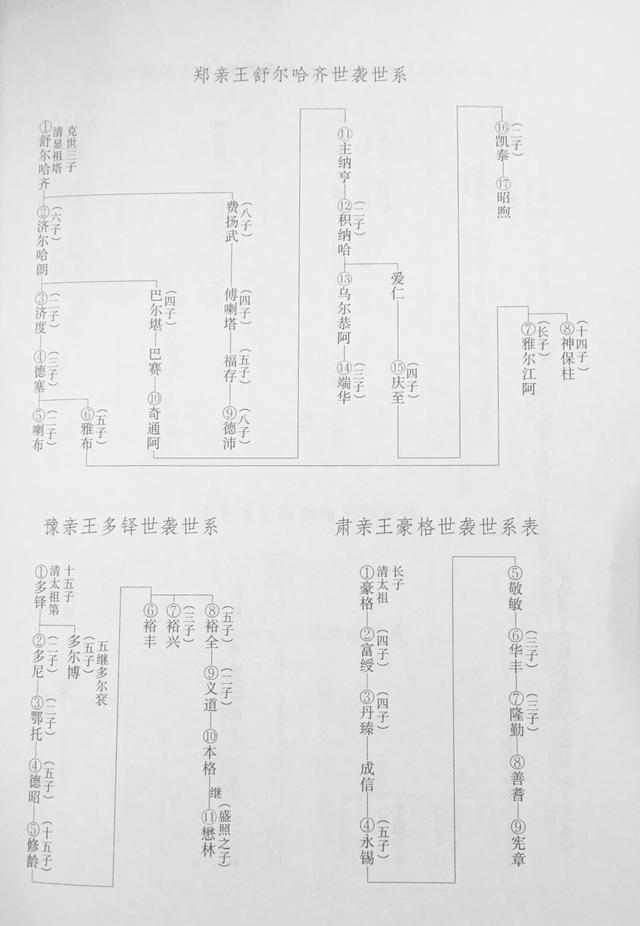 郑亲王舒尔哈齐世袭世系
①舒尔哈齐
清显祖塔
克世三子
②济尔哈朗
(六子)
③济度
(二子)
④德塞
(三子)
⑤喇布
(二子)
⑥雅布
(五子)
巴尔堪
(四子)
巴赛
⑩奇通阿
费扬武
(八子)
傅喇塔
(四子)
福存
(五子)
⑨德沛
(八子)
⑪主纳亨
⑫积纳哈
(二子)
⑬乌尔恭阿
⑭端华
(三子)
爱仁
⑮庆至
(四子)
⑯凯泰
(二子)
⑰昭煦
⑦雅尔江阿
(长子)
⑧神保柱
(十四子)
豫亲王多铎世袭世系
①多铎
清太祖第
十五子
②多尼
(二子)
多尔博
(五子)
五继多尔衮
③鄂托
(二子)
④德昭
(五子)
⑤修龄
(十五子)
⑥裕丰
⑦裕兴
(三子)
⑧裕全
(五子)
⑨义道
(二子)
⑩本格
继
⑪懋林
(盛照之子)
肃亲王豪格世袭世系表
①豪格
清太祖
长子
②富绶
(四子)
③丹臻
(四子)
成信
④永锡
(五子)
⑤敬敏
⑥华丰
(三子)
⑦隆勤
(三子)
⑧善耆
⑨宪章